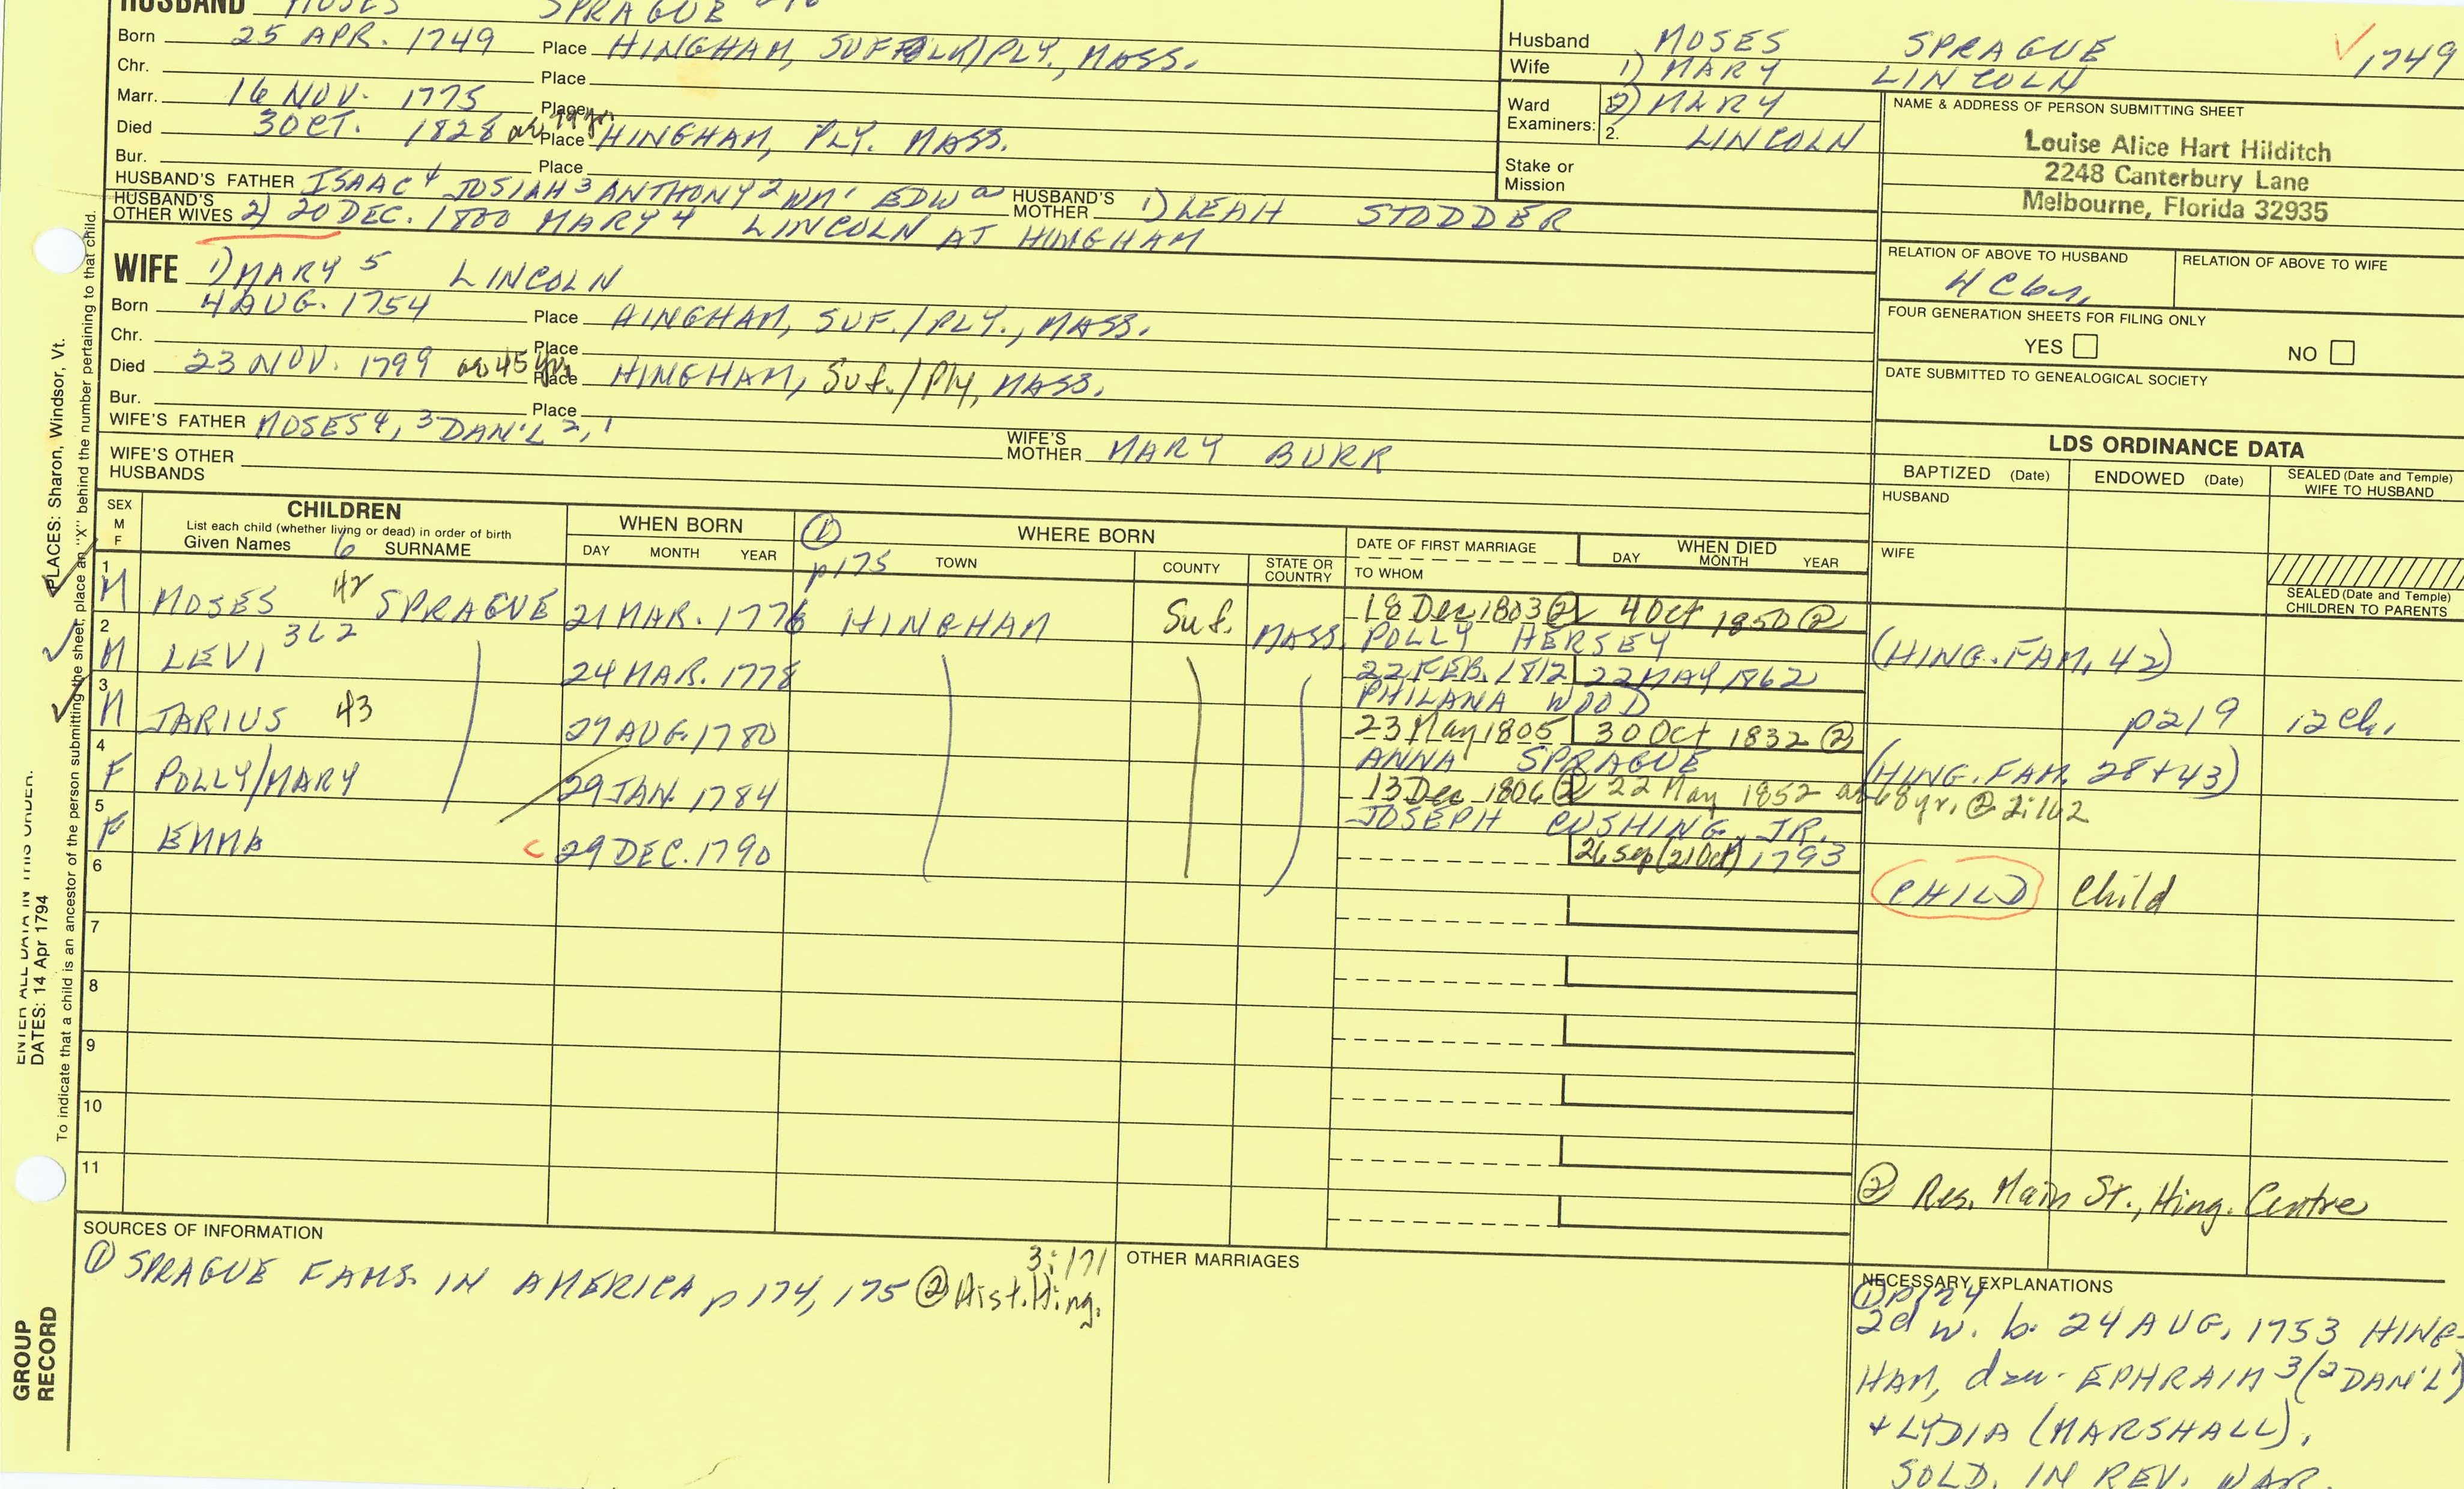 HUSBAND MOSES SPRAGUE
Born 25 APR. 1749 Place HINGHAM, SUFFOLK/PLY., MASS.
Chr. Place
Marr. 16 NOV. 1775 Place
Died 3 OCT. 1828 Place HINGHAM, PLY. MASS.
Bur. Place
HUSBAND'S FATHER ISAAC 4 JOSIAH 3 ANTHONY 2 WM 1 EDW HUSBAND'S MOTHER 1) LEAH STODDER
HUSBAND'S OTHER WIVES 2) 20 DEC. 1800 MARY 4 LINCOLN AT HINGHAM
Husband MOSES SPRAGUE 1749
Wife 1) MARY LINCOLN
Ward Examiners: 2) MARY
2. LINCOLN
Stake or Mission
NAME & ADDRESS OF PERSON SUBMITTING SHEET
Louise Alice Hart Hilditch
2248 Canterbury Lane
Melbourne, Florida 32935
RELATION OF ABOVE TO HUSBAND RELATION OF ABOVE TO WIFE
FOUR GENERATION SHEETS FOR FILING ONLY
YES NO
DATE SUBMITTED TO GENEALOGICAL SOCIETY
WIFE 1) MARY 5 LINCOLN
Born 4 AUG. 1754 Place HINGHAM, SUF./PLY., MASS.
Chr. Place
Died 23 NOV. 1799 Place HINGHAM, Suf./Ply, MASS.
Bur. Place
WIFE'S FATHER MOSES 4, 3 DAN'L 2, 1 WIFE'S MOTHER MARY BURR
WIFE'S OTHER HUSBANDS
LDS ORDINANCE DATA
BAPTIZED (Date) ENDOWED (Date) SEALED (Date and Temple) WIFE TO HUSBAND
HUSBAND
WIFE
SEALED (Date and Temple) CHILDREN TO PARENTS
SEX M F
CHILDREN
List each child (whether living or dead) in order of birth
Given Names 6 SURNAME
WHEN BORN
DAY MONTH YEAR
① p175
WHERE BORN
TOWN COUNTY STATE OR COUNTRY
DATE OF FIRST MARRIAGE
TO WHOM
WHEN DIED
DAY MONTH YEAR
1 M MOSES 42 SPRAGUE 21 MAR. 1776 HINGHAM Suf. MASS. 18 Dec 1803 ② 4 Oct 1850 ②
POLLY HERSEY (HING. FAM. 42)
2 M LEVI 362 24 MAR. 1778 22 FEB. 1812 22 MAY 1862
PHILANA WOOD p219 12 ch.
3 M JARIUS 43 27 AUG. 1780 23 May 1805 30 Oct 1832 ②
ANNA SPRAGUE (HING. FAM. 28+43)
4 F POLLY/MARY 29 JAN. 1784 13 Dec 1806 ② 22 May 1852 ae 68 yr. ② 2:162
JOSEPH CUSHING, JR.
5 F EMMA 29 DEC. 1790 26 Sep (21 Oct) 1793
CHILD Child
6
7
8
9
10
11
② Res. Main St., Hing. Centre
SOURCES OF INFORMATION
① SPRAGUE FAMS. IN AMERICA p 174, 175 ② Hist. Hing. 3:171
OTHER MARRIAGES
NECESSARY EXPLANATIONS
① p174
2d w. b. 24 AUG. 1753 HING-
HAM, dau. EPHRAIM 3 (2 DAN'L 1)
+ LYDIA (MARSHALL).
SOLD. IN REV. WAR.
ENTER ALL DATA IN THIS ORDER:
DATES: 14 Apr 1794
PLACES: Sharon, Windsor, Vt.
To indicate that a child is an ancestor of the person submitting the sheet, place an "X" behind the number pertaining to that child.
GROUP
RECORD